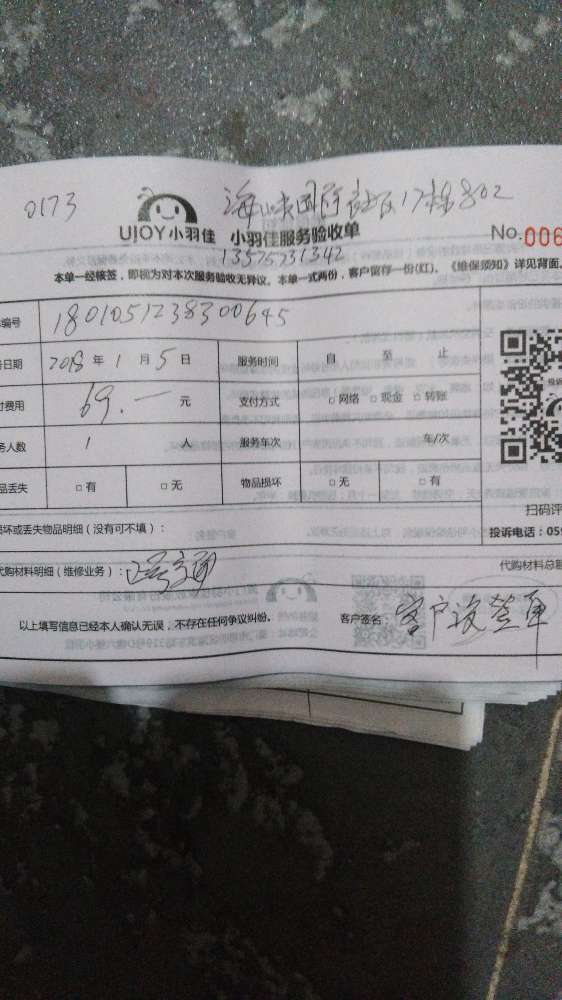 0173
海峡国际社区17栋802
UJOY 小羽佳 小羽佳服务验收单
No.006
13575231342
本单一经核签，即视为对本次服务验收无异议。本单一式两份，客户留存一份(红)。《维保须知》详见背面。
编号 1801051238300645
日期 2018 年 1 月 5 日 服务时间 自 至 止
付费用 69.— 元 支付方式 □ 网络 □ 现金 □ 转账
务人数 1 人 服务车次 车/次
品丢失 □ 有 □ 无 物品损坏 □ 无 □ 有
扫码评
损坏或丢失物品明细（没有可不填）：
投诉电话：059
代购材料明细（维修业务）：
代购材料总额
以上填写信息已经本人确认无误，不存在任何争议纠纷。 客户签名： 客户没签单